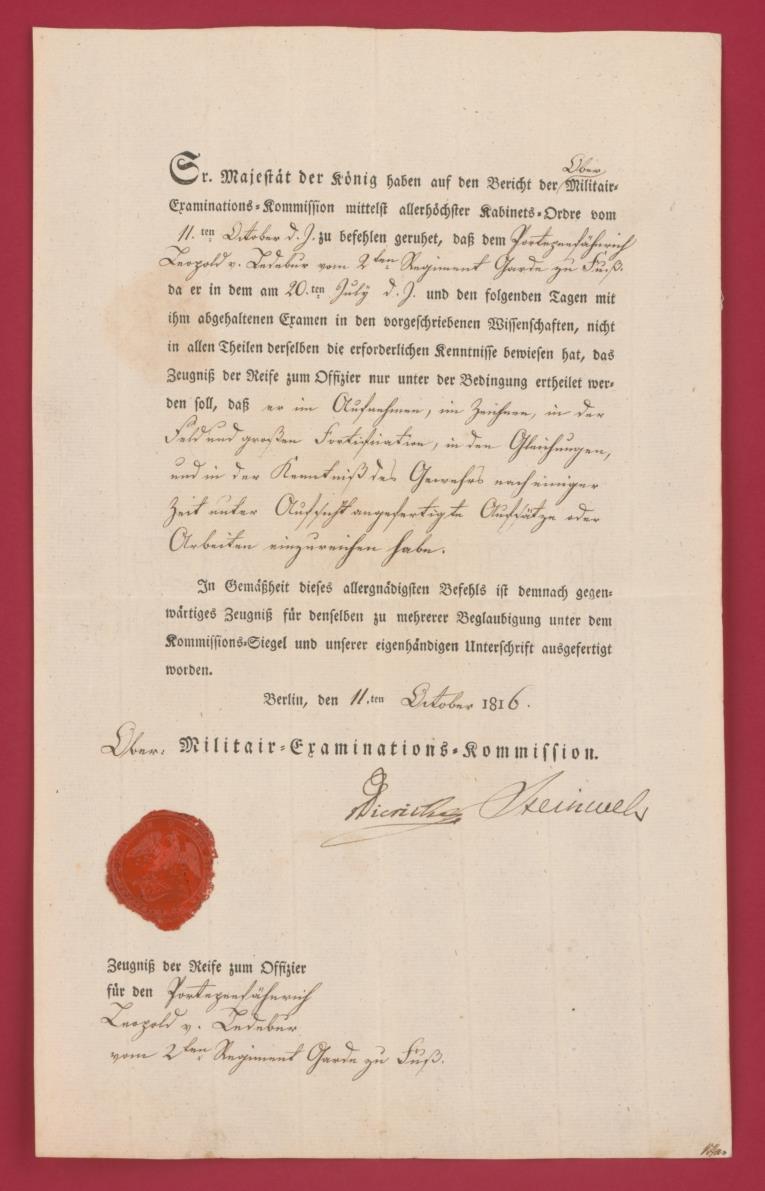 Ober
Sr. Majestät der König haben auf den Bericht der Militair-
Examinations-Kommission mittelst allerhöchster Kabinets-Ordre vom
11.ten October d. J. zu befehlen geruhet, daß dem Portepeefähnrich
Leopold v. Ledebur vom 2ten Regiment Garde zu Fuß.
da er in dem am 20.ten July d. J. und den folgenden Tagen mit
ihm abgehaltenen Examen in den vorgeschriebenen Wissenschaften, nicht
in allen Theilen derselben die erforderlichen Kenntnisse bewiesen hat, das
Zeugniß der Reife zum Offizier nur unter der Bedingung ertheilet wer-
den soll, daß er im Aufnehmen, im Zeichnen, in der
Feld und großen Fortification, in den Gleichungen,
und in der Kenntniß des Gewehrs nach einiger
Zeit unter Aufsicht angefertigte Aufsätze oder
Arbeiten einzureichen habe.
In Gemäßheit dieses allergnädigsten Befehls ist demnach gegen-
wärtiges Zeugniß für denselben zu mehrerer Beglaubigung unter dem
Kommissions-Siegel und unserer eigenhändigen Unterschrift ausgefertigt
worden.
Berlin, den 11.ten October 1816.
Ober: Militair-Examinations-Kommission.
Zeugniß der Reife zum Offizier
für den Portepeefähnrich
Leopold v. Ledebur
vom 2ten Regiment Garde zu Fuß.